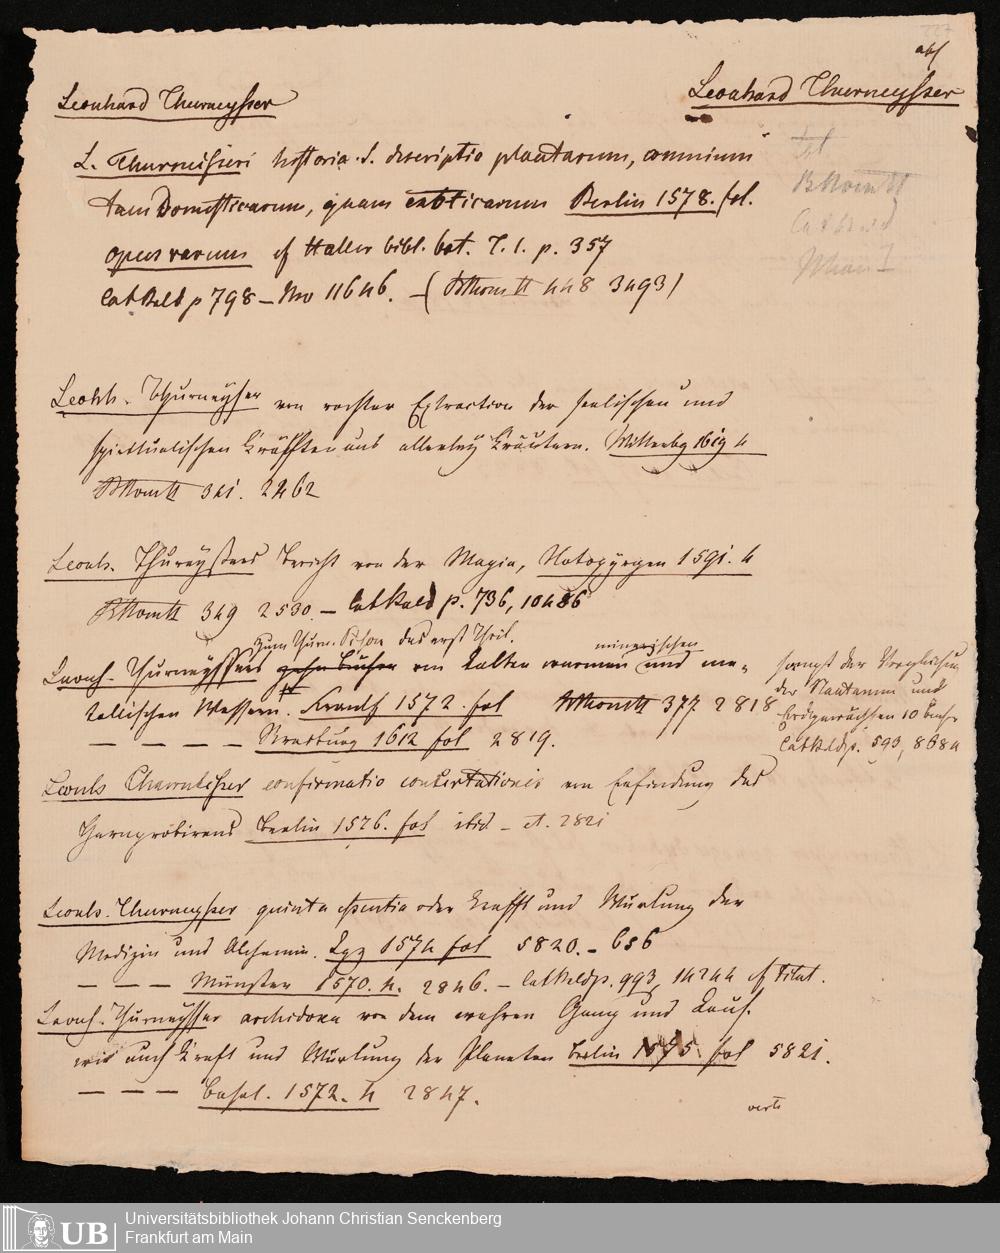 abs
Leonhard Thurneysser
Leonhard Thurneysser
L. Thurneisseri historia s. descriptio plantarum, omnium
tam Domesticarum, quam exoticarum Berlin 1578. fol.
opus rarum cf Haller bibl. bot. T. 1. p. 357
Cat Keld p 798 – No 11646. – ( 448 3493)
Leonh. Thurneysser von rechter Extraction der seelischen und
spiritualischen Kräfften aus allerley Kräutern. Wittenbg 1619 4
341. 2462
Leonh. Thurneyssers Bericht von der Magia, 1591. 4
349 2530 – Cat Keld p. 736, 10486
zum Thurn. Pison das erst Theil.
mineralischen
Leonh. Thurneyssers zehn Bücher von kalten warmen und me-
tallischen Wassern. Frankf 1572. fol 377 2818
– – – – Strasburg 1612 fol 2819.
sampt der Vergleichung
der Plantarum und
Erdgewächsen 10 Buch.
Cat Keld p. 593, 8684
Leonh Thurneisser confirmatio concertationis von Erfindung des
Harnprobirens Berlin 1576. fol ibid – ct. 2821
Leonh. Thurneysser quinta essentia oder Krafft und Würkung der
Medizin und Alchemia. Lpz 1574 fol 5820. – 656
– – – Münster 1570. 4. 2846. – Cat Keld p. 993, 14244 cf Titat.
Leonh. Thurneysser archidoxa von dem wahren Gang und Lauf.
wie auch Kraft und Würkung der Planeten Berlin 1575 fol 5821.
– – – Basel. 1572. 4 2847.
verte
UB
Universitätsbibliothek Johann Christian Senckenberg
Frankfurt am Main